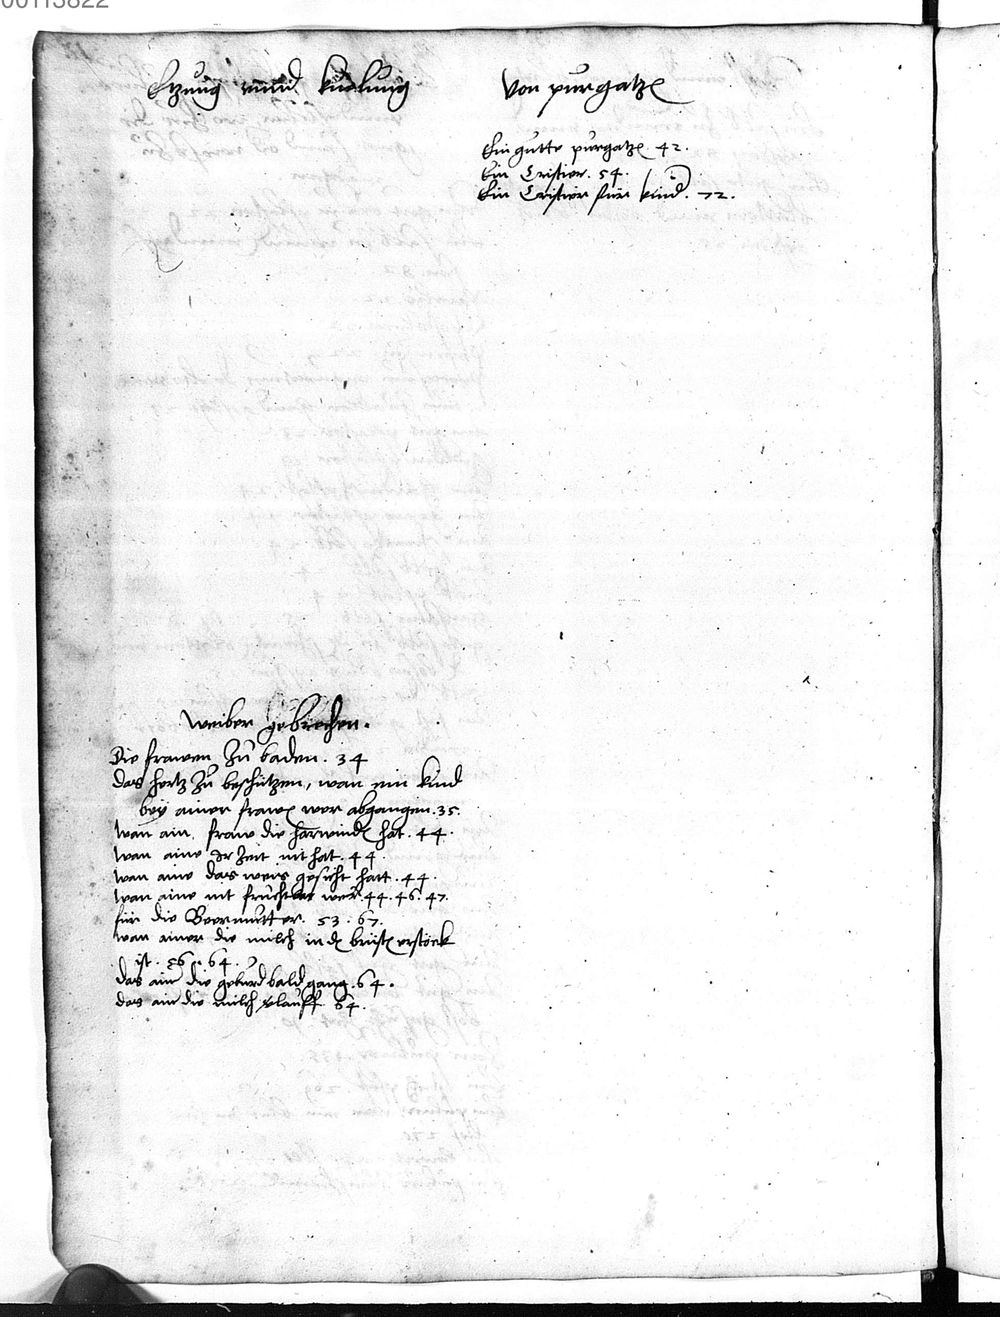 00113822
Etzung vnnd kuelung
Von purgatzen
Ein gutte purgatzen 42.
Ein Cristier. 54.
Ein Cristier für kind. 72.
Weiber gebrechen.
Die frawen zu baden. 34
das hertz zu beschützen, wan ein kind
bey ainer frawen wer abgangen. 35.
wan ain fraw die harwinden hat. 44.
wan aine Ir zeit nit hat. 44.
wan aine das weis gesicht hatt. 44.
wan aine nit fruchtbar wer 44. 46. 47.
für die Beermutter. 53. 67.
wan ainer die milch in den brüsten erstöck
ist. 56. 64.
das ain die geburd bald gang. 64.
das ain die milch verlauff 64.